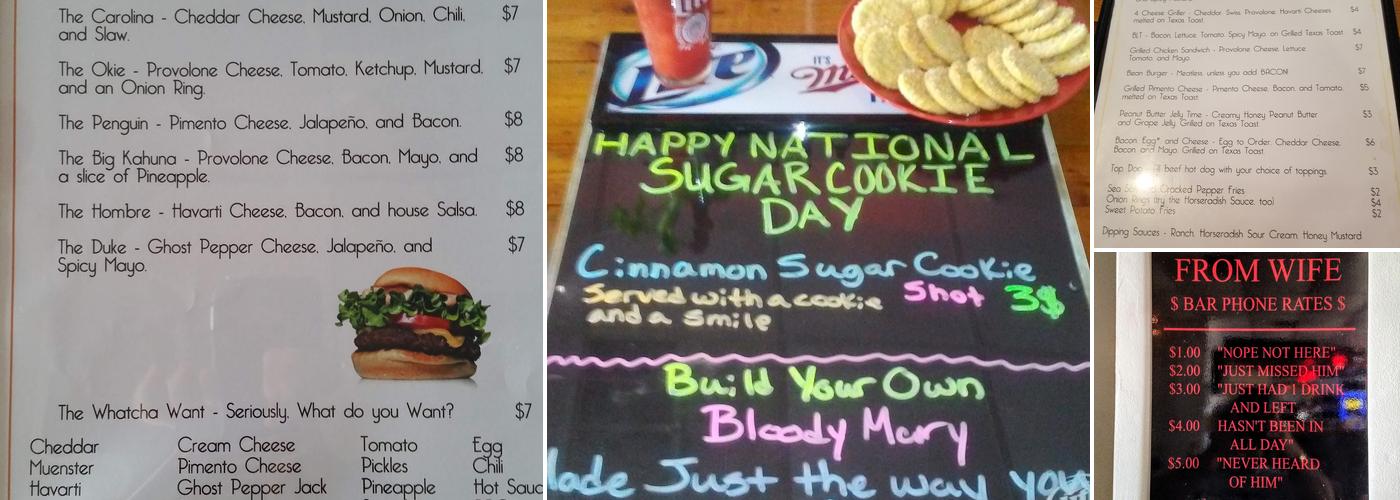 The Carolina - Cheddar Cheese, Mustard, Onion, Chili, $7
and Slaw.
The Okie - Provolone Cheese, Tomato, Ketchup, Mustard, $7
and an Onion Ring.
The Penguin - Pimento Cheese, Jalapeño, and Bacon. $8
The Big Kahuna - Provolone Cheese, Bacon, Mayo, and $8
a slice of Pineapple.
The Hombre - Havarti Cheese, Bacon, and house Salsa. $8
The Duke - Ghost Pepper Cheese, Jalapeño, and $7
Spicy Mayo.
The Whatcha Want - Seriously, What do you Want? $7
Cheddar Cream Cheese Tomato Egg
Muenster Pimento Cheese Pickles Chili
Havarti Ghost Pepper Jack Pineapple Hot Sauc
Lite
IT'S
Miller
HAPPY NATIONAL
SUGAR COOKIE
DAY
Cinnamon Sugar Cookie
Served with a cookie Shot 3$
and a smile
Build Your Own
Bloody Mary
Made Just the way you
4 Cheese Griller - Cheddar, Swiss, Provolone, Havarti Cheeses $4
melted on Texas Toast
BLT - Bacon, Lettuce, Tomato, Spicy Mayo, on Grilled Texas Toast $4
Grilled Chicken Sandwich - Provolone Cheese, Lettuce, $7
Tomato, and Mayo.
Bean Burger - Meatless, unless you add BACON! $7
Grilled Pimento Cheese - Pimento Cheese, Bacon, and Tomato, $5
melted on Texas Toast
Peanut Butter Jelly Time - Creamy Honey Peanut Butter $3
and Grape Jelly Grilled on Texas Toast
Bacon Egg* and Cheese - Egg to Order, Cheddar Cheese, $6
Bacon, and Mayo, Grilled on Texas Toast
Top Dog - beef hot dog with your choice of toppings $3
Sea Cracked Pepper Fries $2
Onion Rings (try the Horseradish Sauce, too) $4
Sweet Potato Fries $2
Dipping Sauces - Ranch, Horseradish Sour Cream, Honey Mustard
FROM WIFE
$ BAR PHONE RATES $
$1.00 "NOPE NOT HERE"
$2.00 "JUST MISSED HIM"
$3.00 "JUST HAD 1 DRINK
AND LEFT
$4.00 HASN'T BEEN IN
ALL DAY"
$5.00 "NEVER HEARD
OF HIM"